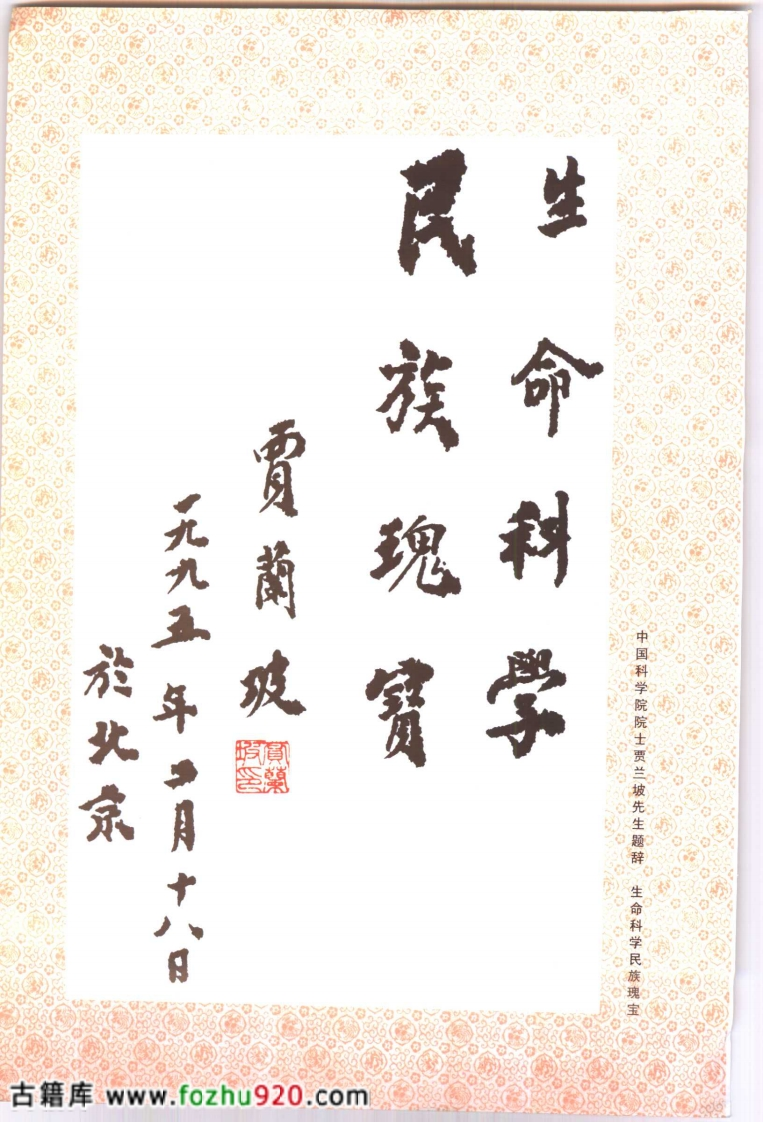 生命科學
民族瑰寶
賈蘭坡
一九九五年二月十八日
於北京
賈蘭坡印
中国科学院院士贾兰坡先生题辞 生命科学民族瑰宝
古籍库 www.fozhu920.com